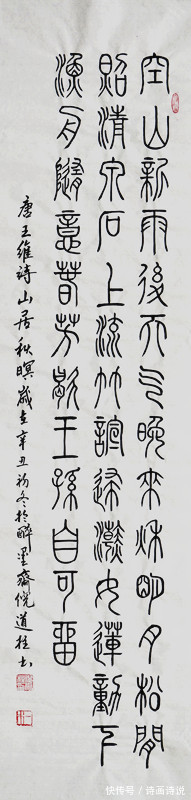 空山新雨後天气晚來秋明月松間
照清泉石上流竹諠歸澣女蓮動下
漁舟隨意春芳歇王孫自可留
唐王維詩山居秋暝歲在辛丑初冬於醉墨齋倪道書
快传号/诗画诗说